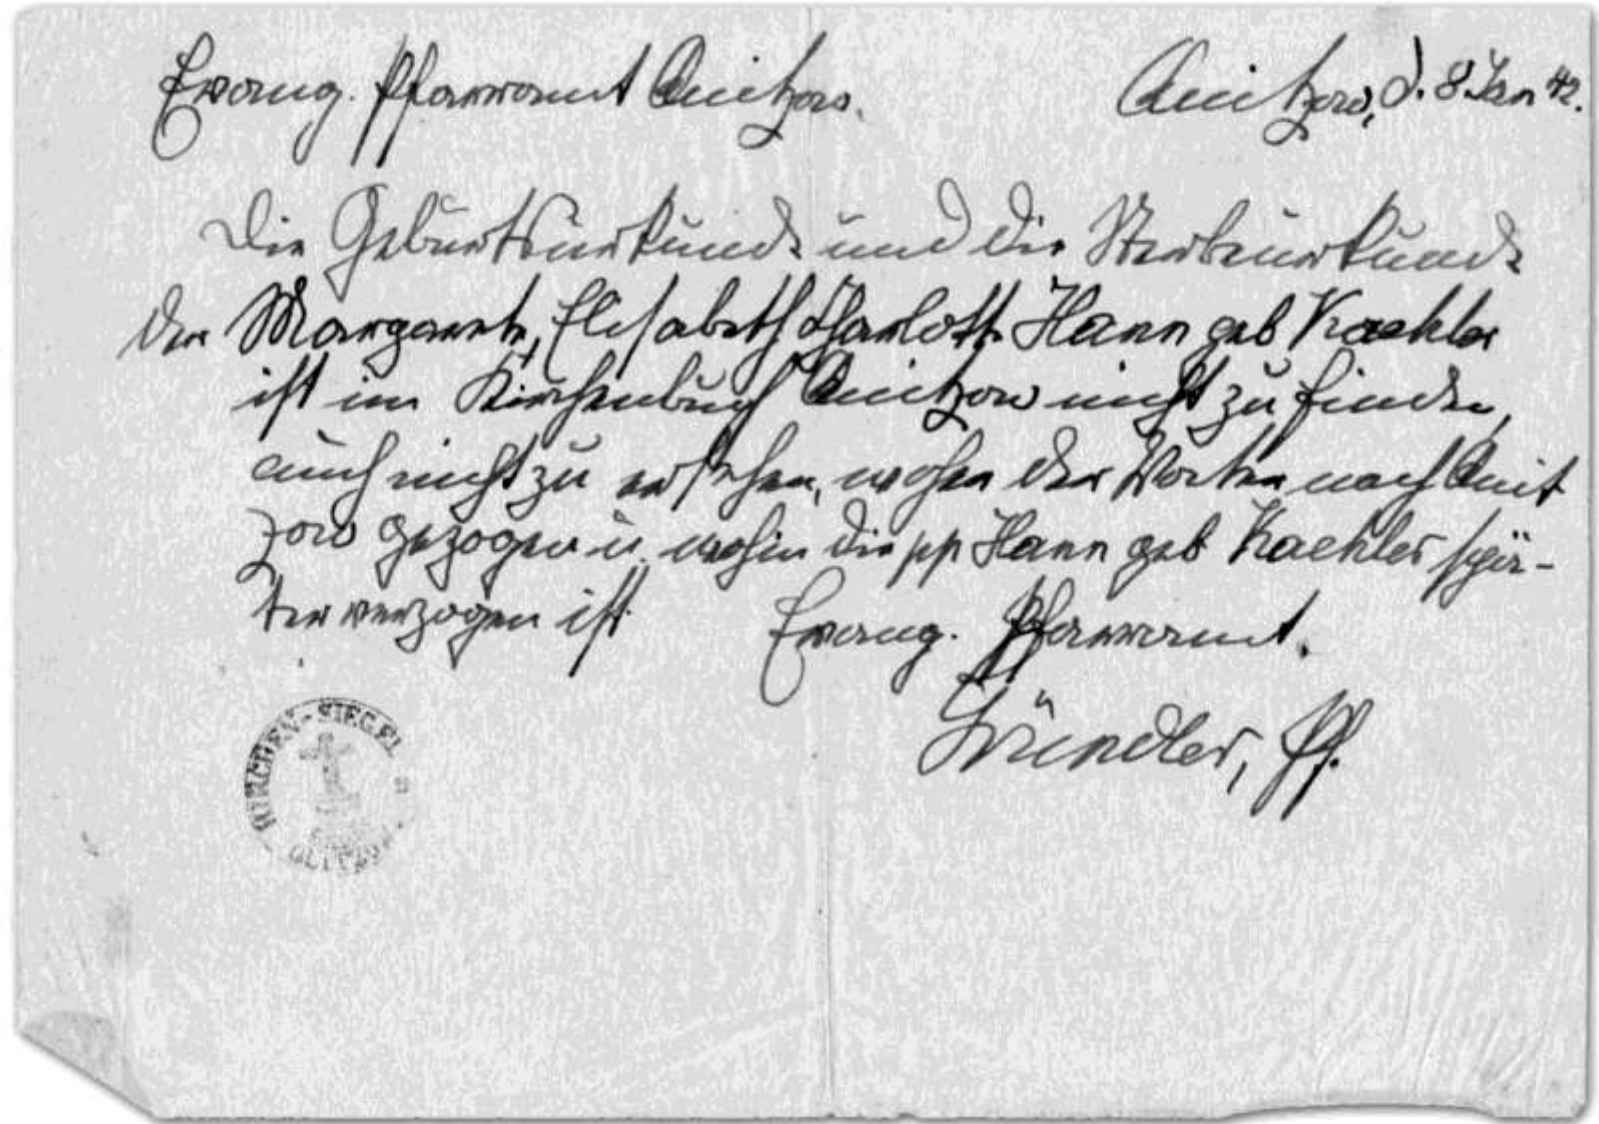 Evang. Pfarramt Quitzow. Quitzow, d. 8 Jan 42.
Die Geburtsurkunde und die Sterbeurkunde
der Margarete, Elisabeth Charlotte Hann geb Kaehler
ist im Kirchenbuch Quitzow nicht zu finden,
auch nicht zu ersehen, woher der Vater nach Quit
zow gezogen u. wohin die pp Hann geb Kaehler spä-
ter verzogen ist.
Evang. Pfarramt.
Gründler, Pf.
KIRCHEN-SIEGEL